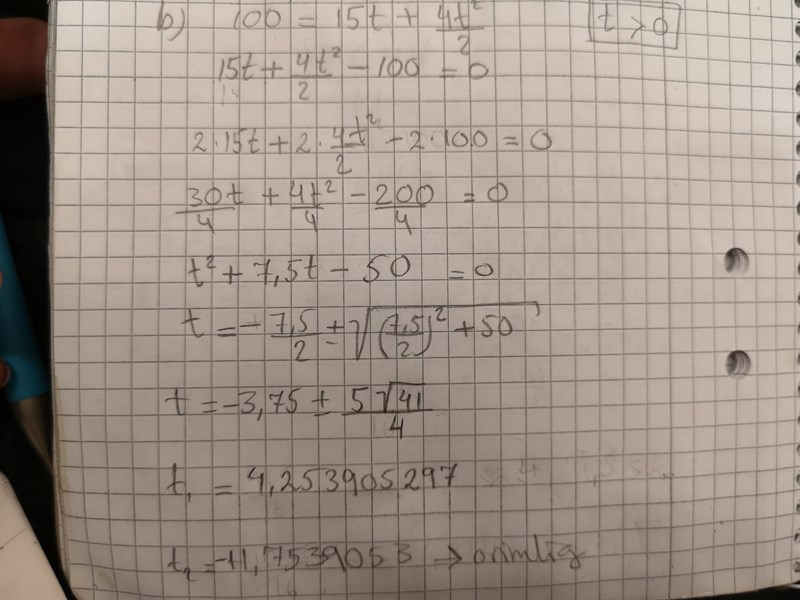 b) 100 = 15t + 4t²/2 t > 0
15t + 4t²/2 - 100 = 0
2·15t + 2·4t²/2 - 2·100 = 0
30t/4 + 4t²/4 - 200/4 = 0
t² + 7,5t - 50 = 0
t = -7,5/2 ± √((7,5/2)² + 50)
t = -3,75 ± 5√41/4
t₁ = 4,253905297
t₂ = -11,7539053 → orimlig